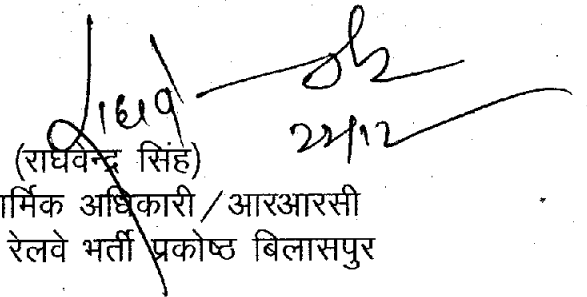 22/12
(राघवेन्द्र सिंह)
कार्मिक अधिकारी/आरआरसी
रेलवे भर्ती प्रकोष्ठ बिलासपुर